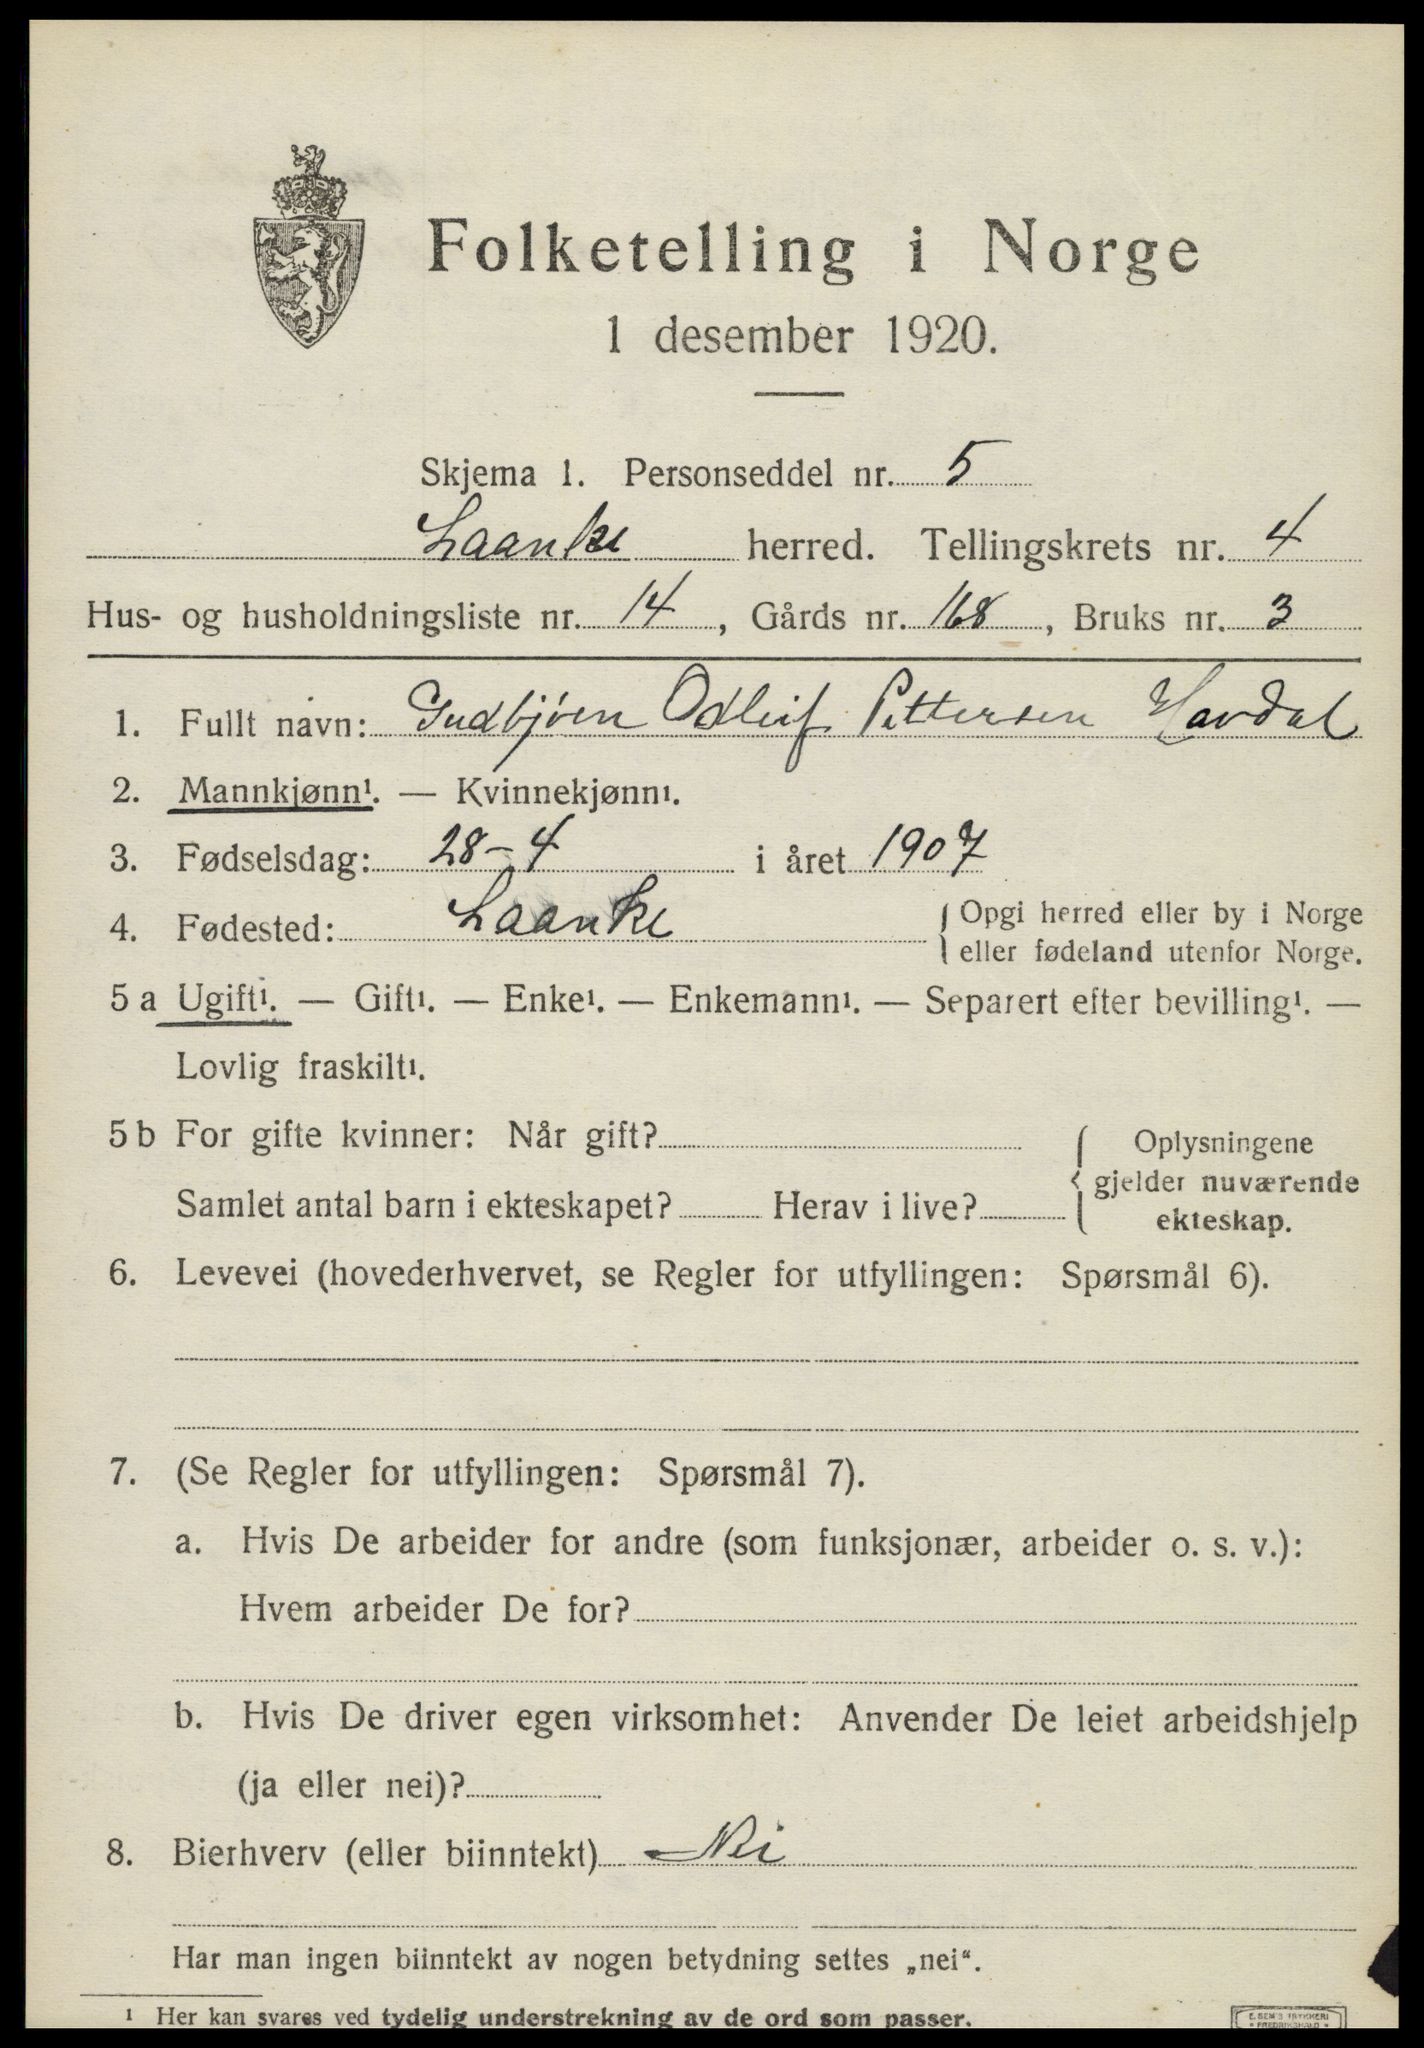 Folketelling i Norge
1 desember 1920.
Skjema 1. Personseddel nr. 5
Laanke herred. Tellingskrets nr. 4
Hus- og husholdningsliste nr. 14, Gårds nr. 168, Bruks nr. 3
1. Fullt navn: Gudbjörn Odleif Pettersen Havdal
2. Mannkjønn¹. — Kvinnekjønn¹.
3. Fødselsdag: 28-4 i året 1907
4. Fødested: Laanke { Opgi herred eller by i Norge
eller fødeland utenfor Norge.
5 a Ugift¹. — Gift¹. — Enke¹. — Enkemann¹. — Separert efter bevilling¹. —
Lovlig fraskilt¹.
5 b For gifte kvinner: Når gift?
Samlet antal barn i ekteskapet? Herav i live?
{ Oplysningene
gjelder nuværende
ekteskap.
6. Levevei (hovederhvervet, se Regler for utfyllingen: Spørsmål 6).
7. (Se Regler for utfyllingen: Spørsmål 7).
a. Hvis De arbeider for andre (som funksjonær, arbeider o. s. v.):
Hvem arbeider De for?
b. Hvis De driver egen virksomhet: Anvender De leiet arbeidshjelp
(ja eller nei)?
8. Bierhverv (eller biinntekt) Nei
Har man ingen biinntekt av nogen betydning settes „nei“.
¹ Her kan svares ved tydelig understrekning av de ord som passer.
E. SEM'S TRYKKERI
• FREDRIKSHALD •